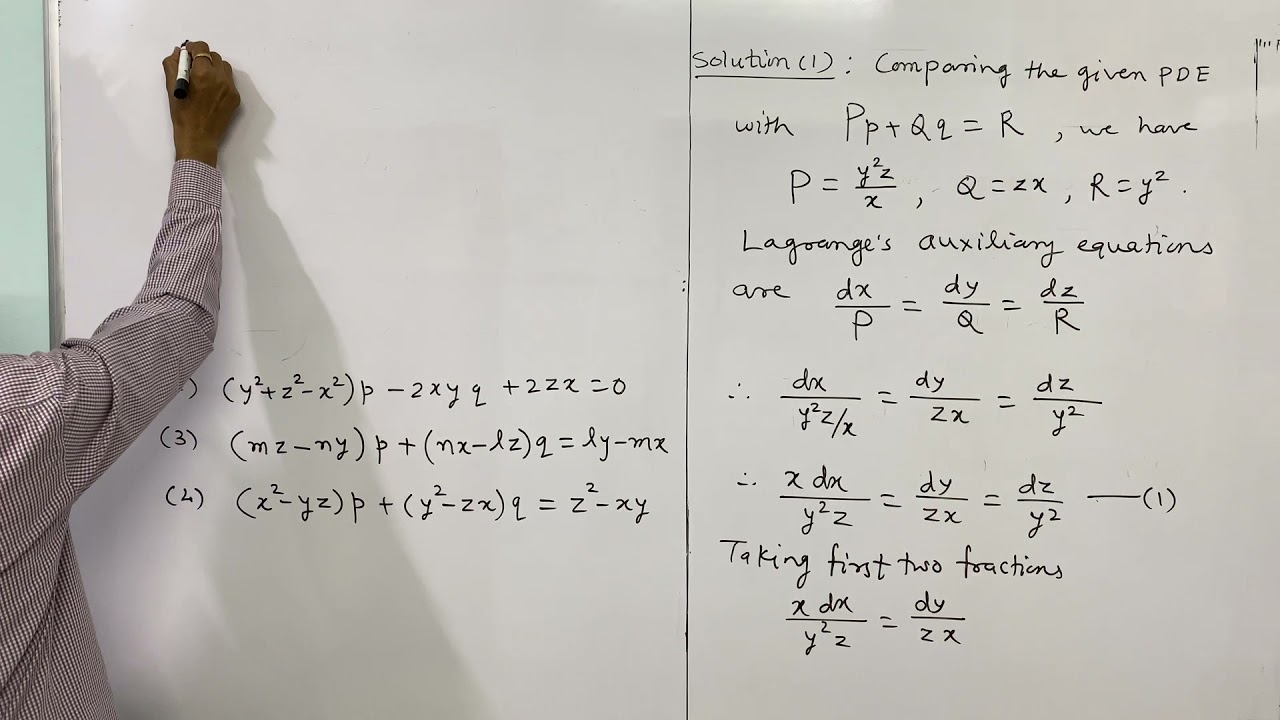 ) (y²+z²-x²)p -2xyq +2zx=0
(3) (mz-ny)p+(nx-lz)q=ly-mx
(4) (x²-yz)p+(y²-zx)q=z²-xy
Solution(1): Comparing the given PDE
with Pp+Qq=R, we have
P=y²z/x, Q=zx, R=y².
Lagrange's auxiliary equations
are dx/P = dy/Q = dz/R
∴ dx/(y²z/x) = dy/zx = dz/y²
∴ x dx/y²z = dy/zx = dz/y² —(1)
Taking first two fractions
x dx/y²z = dy/zx